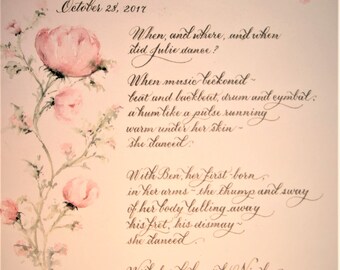 October 28, 2017
When, and where, and when
did Julie dance?
When music beckoned ~
beat and backbeat, drum and cymbal;
a hum like a pulse running
warm under her skin ~
she danced.
With Ben, her first-born,
in her arms ~ the thump and sway
of her body lulling away
his fret, his dismay ~
she danced.